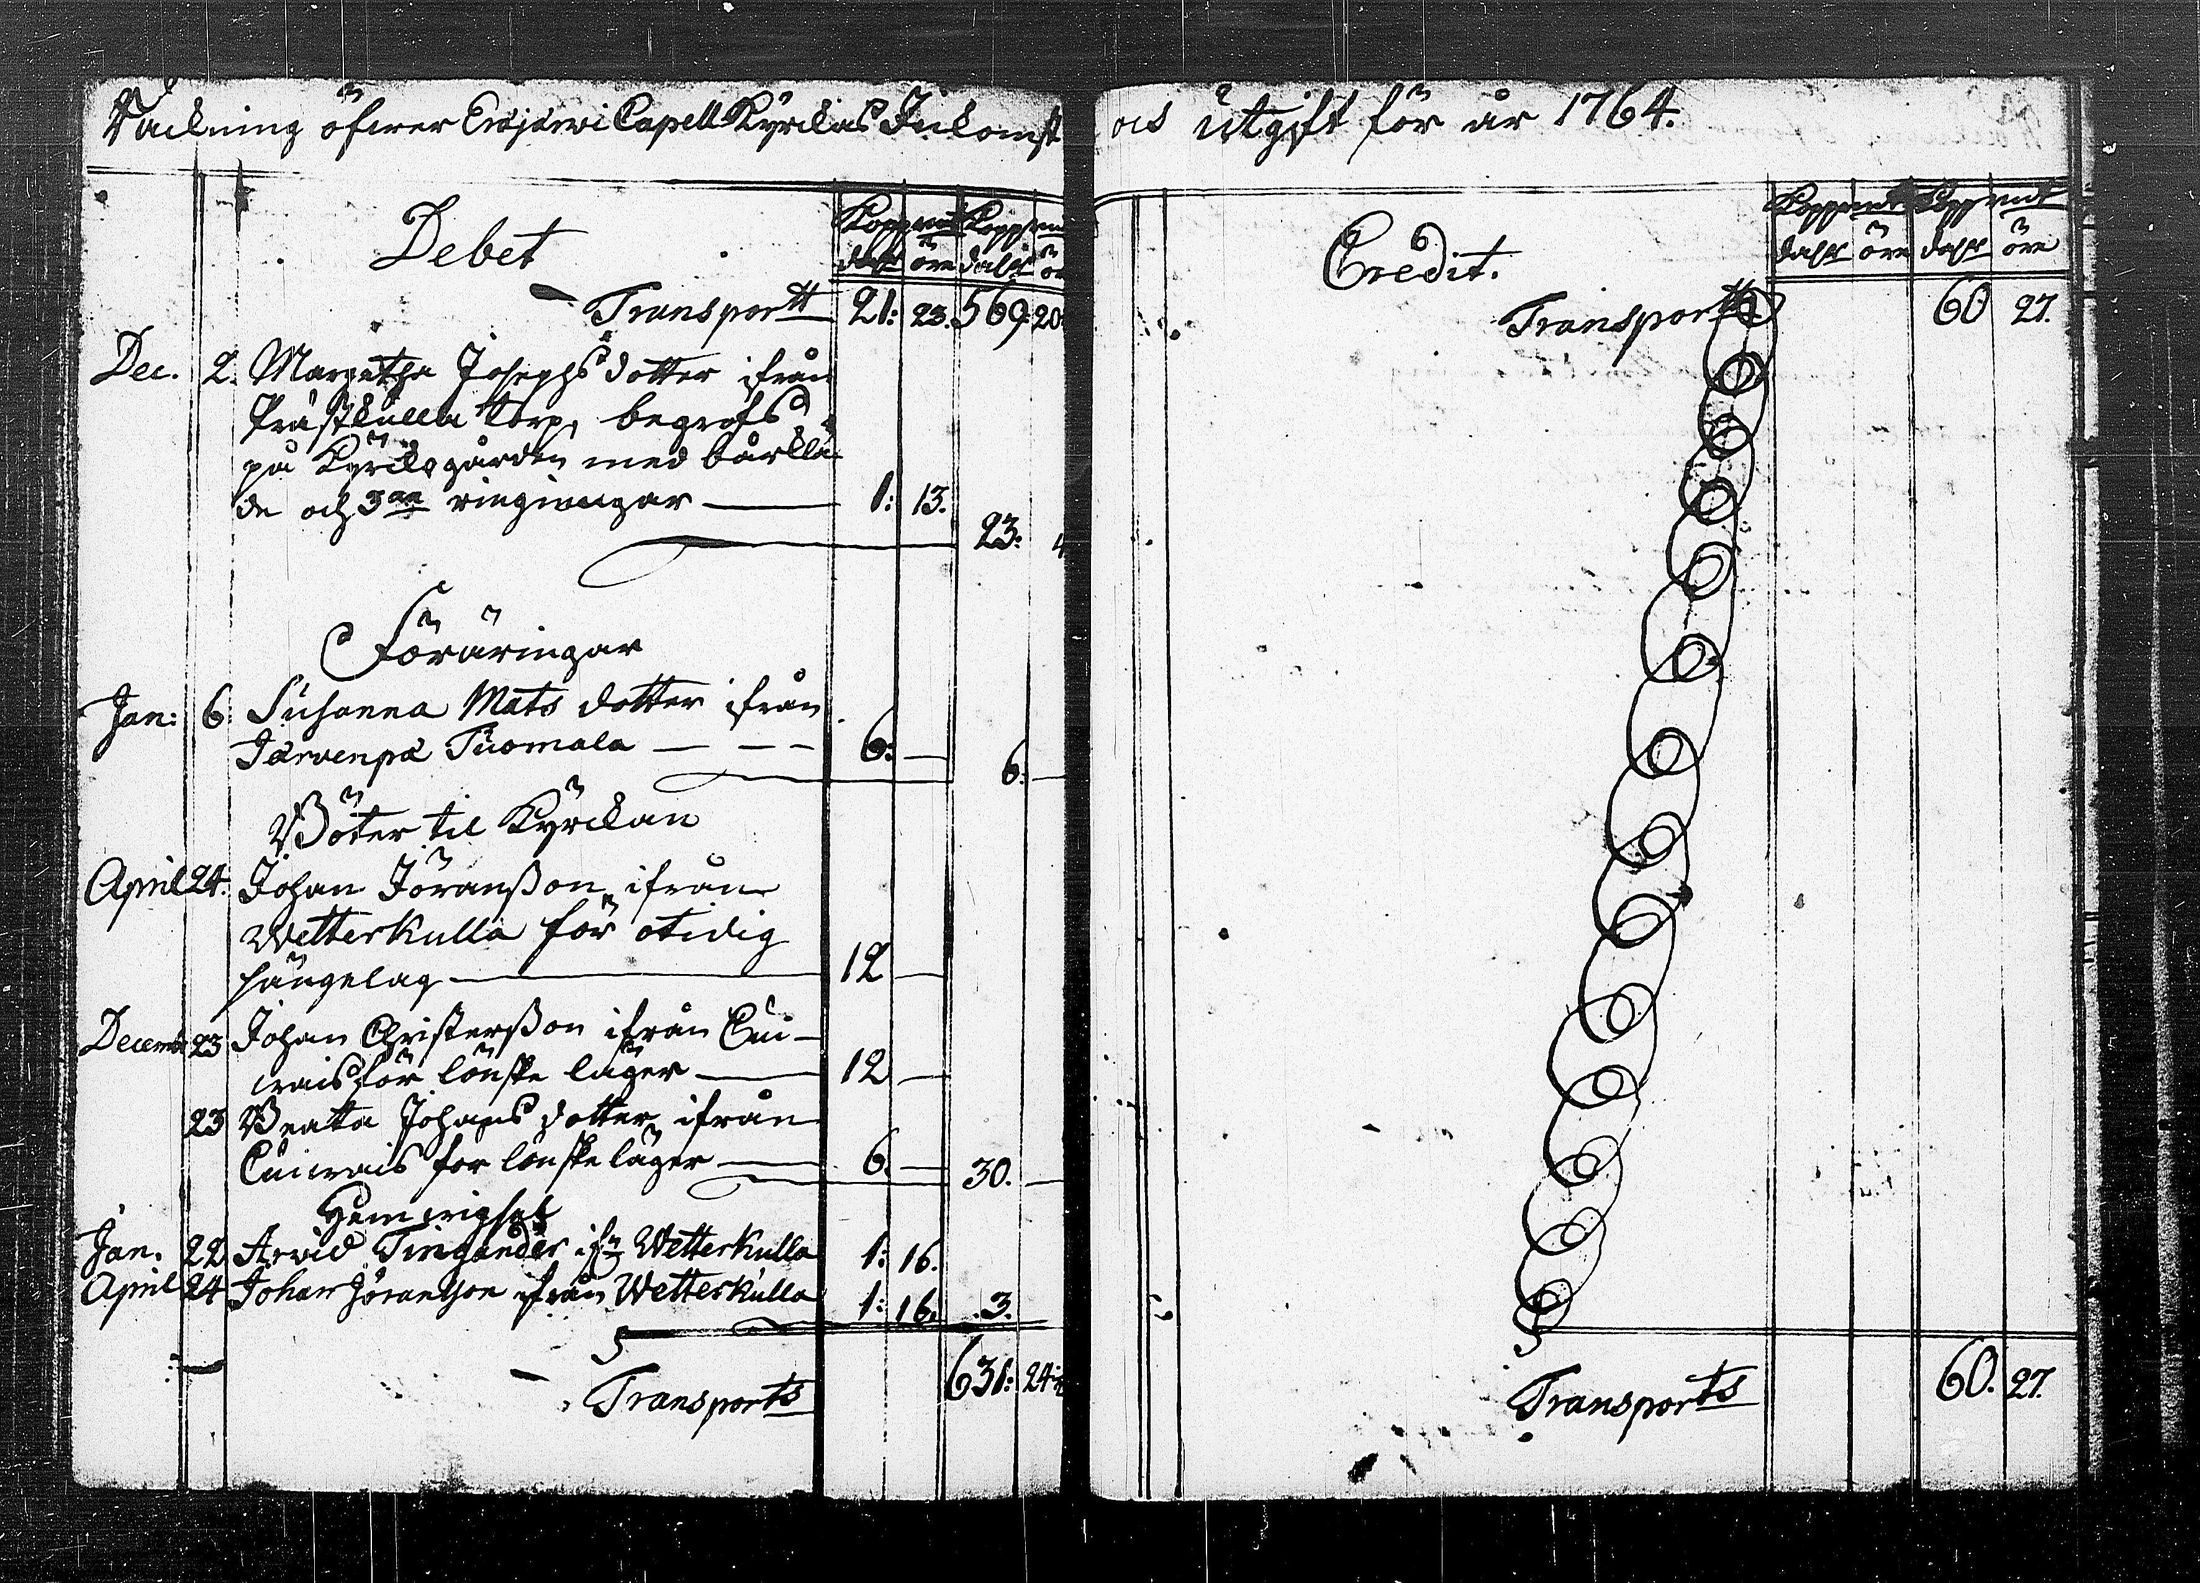 Räckning öfwer Eräjärwi Capell Kyrckas Inkomst och Utgift för år 1764.
Debet
Koppmt Koppmt
dalr öre dalr öre
Transportt 21: 23. 569. 20
Dec. 2. Margetha Josephs dotter ifrån
Prästkulla torp, begrofs
på Kyrckogården med bårklä
de och 3ne ringningar 1: 13.
23: 4
Föräringar
Jan: 6. Susanna Mats dotter ifrån
Järvenpä Tuomala — — — 6: —
6: —
Böter til Kyrckan
April 24. Johan Jöranßon ifrån
Wetterkulla för otidig
sängelag 12 —
Decemb 23 Johan Christerßon ifrån Cui-
wais för lönske läger 12 —
23 Beata Johans dotter ifrån
Cuiwais for lönske läger 6. — 30. —
Hemwigsel
Jan. 22 Arvid Tingander ifn Wetterkulla 1: 16.
April 24 Johan Jöranson ifrån Wetterkulla 1: 16. 3.
Transports 631: 24
Credit.
Koppmt Koppmt
dalr öre dalr öre
Transportt 60 27.
Transports 60. 27.